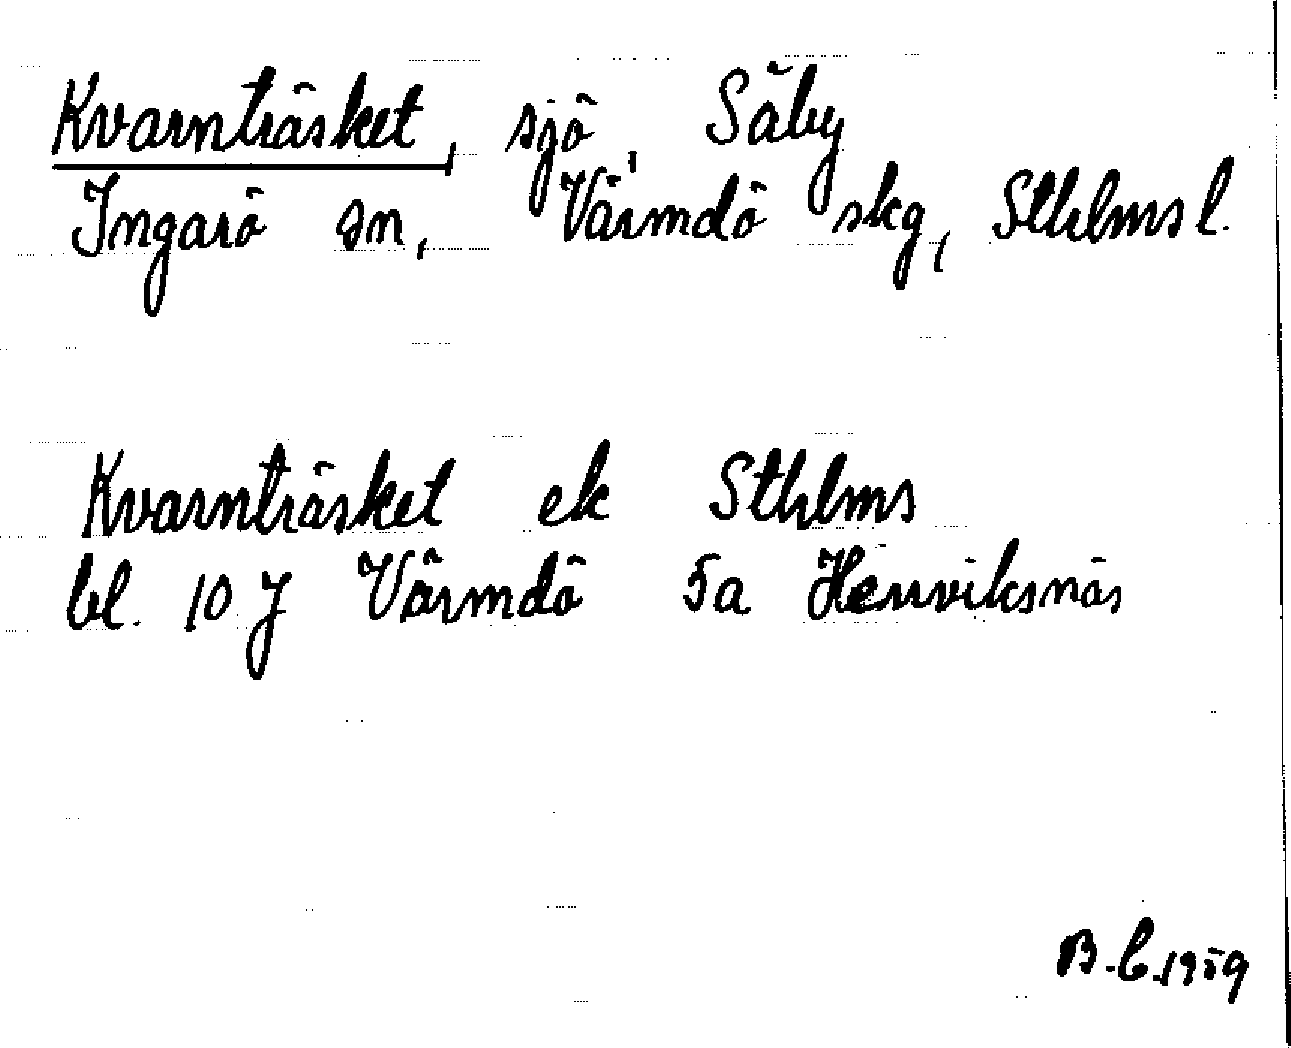 Kvarnträsket, sjö, Säby
Ingarö sn, Värmdö skg, Sthlms l.
Kvarnträsket ek Sthlms
bl. 10 J Värmdö 5a Henriksnäs
B.C.1959